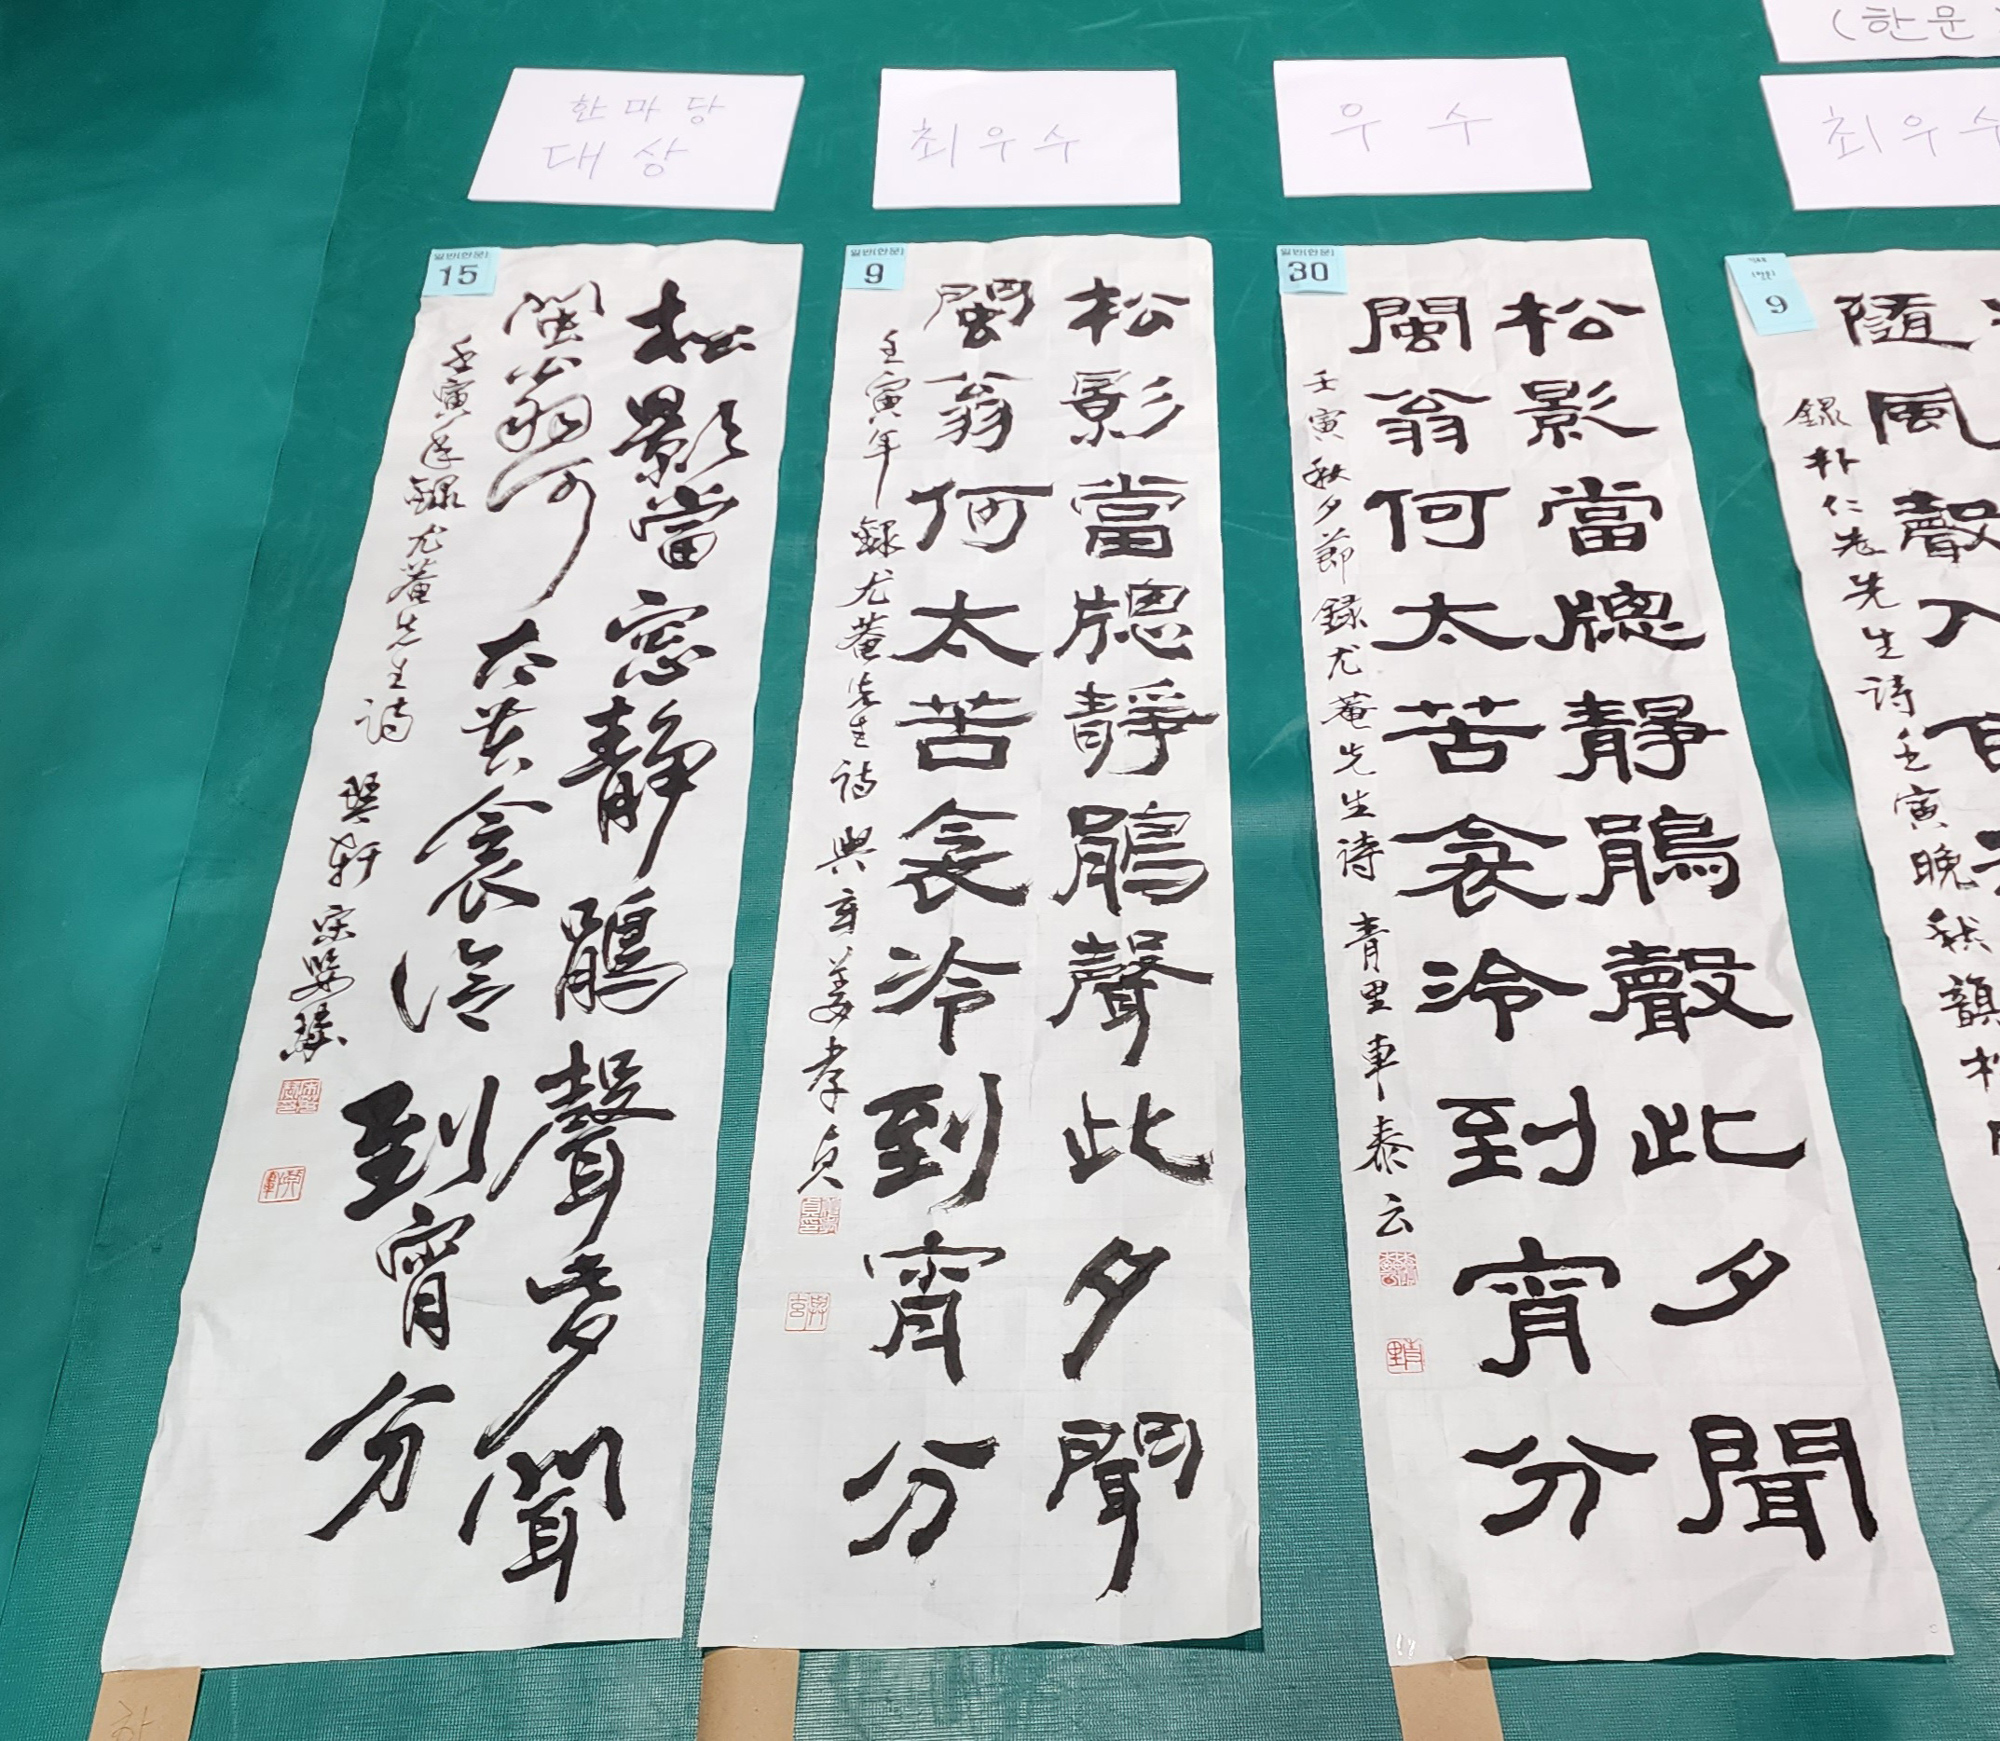 한마당
대상
최우수
우수
(한문
최우수
일반(한문)
15
松影當窓靜鵑聲此夕聞
閩翁何太苦衾冷到宵分
壬寅年錄尤菴先生詩
일반(한문)
9
松影當牕靜鵑聲此夕聞
閩翁何太苦衾冷到宵分
壬寅年錄尤菴先生詩 姜孝貞
일반(한문)
30
松影當牕靜鵑聲此夕聞
閩翁何太苦衾冷到宵分
壬寅秋夕節錄尤菴先生詩 青里車泰云
9
隨風聲入
錄朴仁老先生詩壬寅晚秋韻